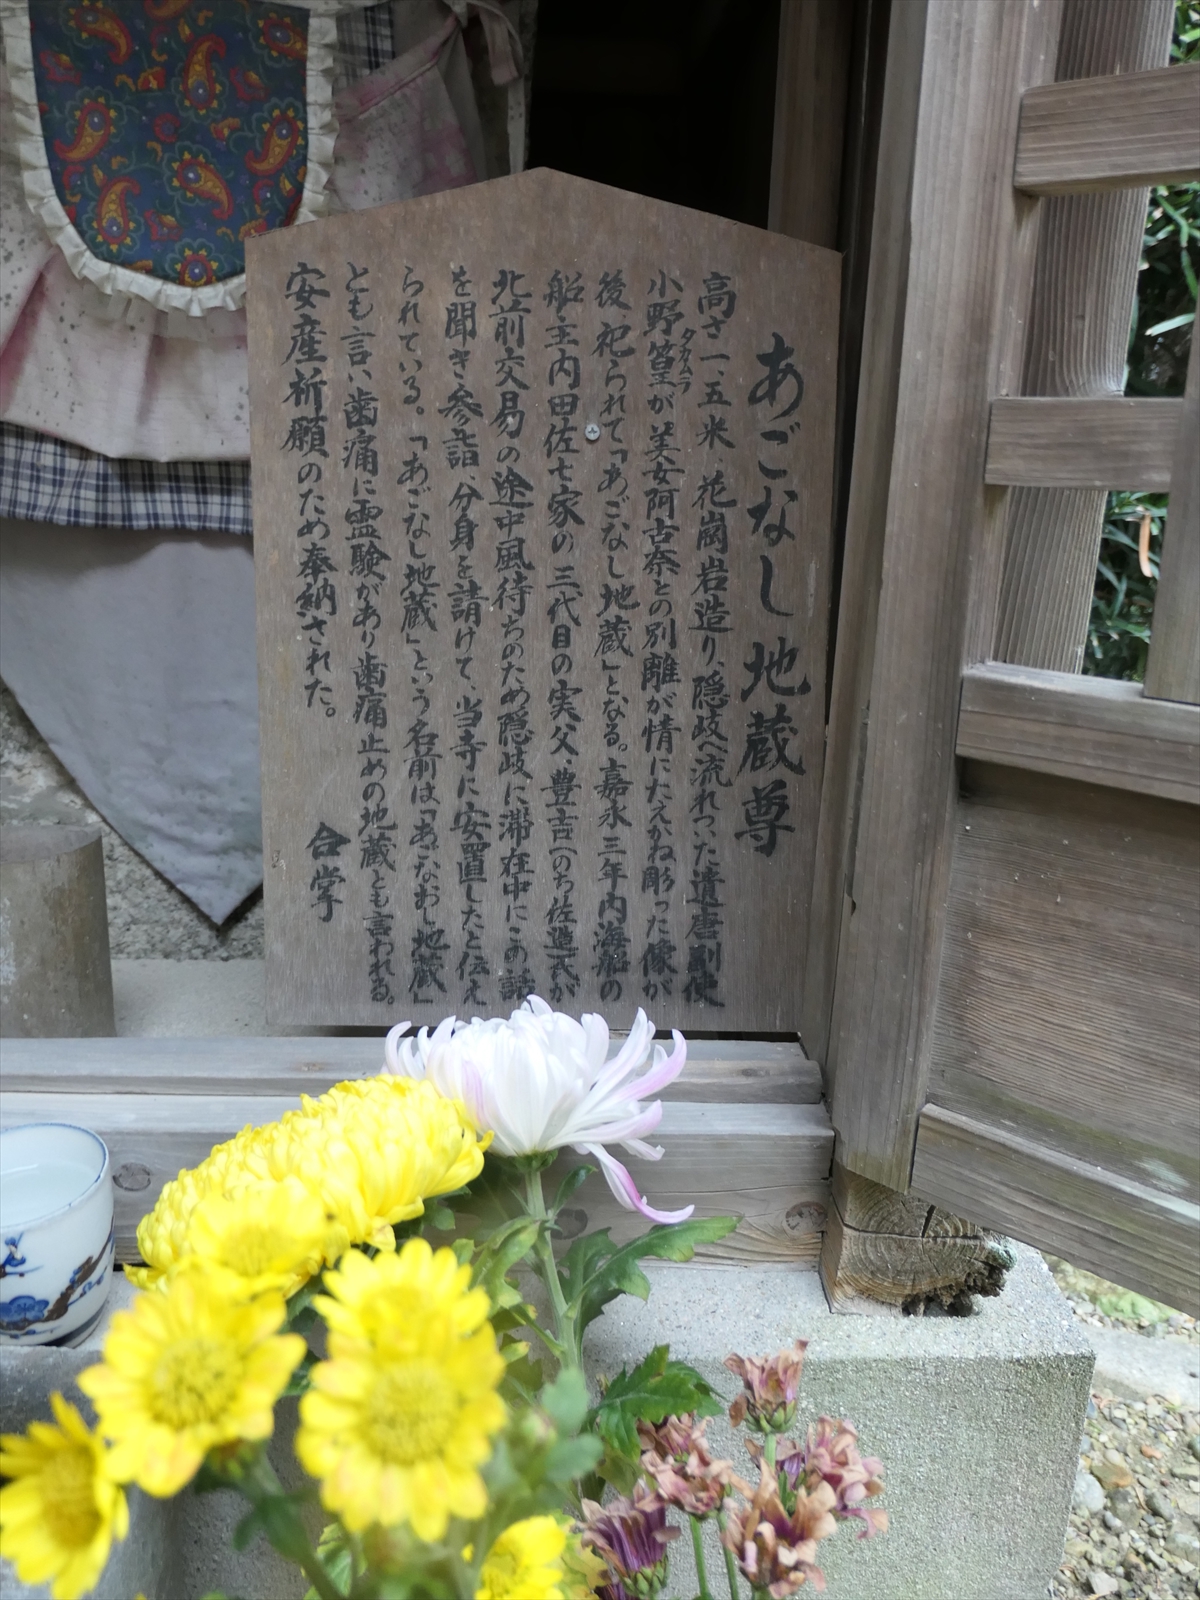 あごなし地蔵尊
高さ一、五米、花崗岩造り、隠岐へ流れついた遣唐副使
小野篁が美女阿古奈との別離が情にたえかね彫った像が
タカムラ
後祀られて「あごなし地蔵」となる。嘉永三年内海船の
船主内田佐七家の三代目の実父、豊吉(のち佐造)氏が
北前交易の途中風待ちのため隠岐に滞在中にこの話
を聞き参詣、分身を請けて、当寺に安置したと伝え
られている。「あごなし地蔵」という名前は「あごなおし地蔵」
とも言い、歯痛に霊験があり歯痛止めの地蔵とも言われる。
安産祈願のため奉納された。
合掌